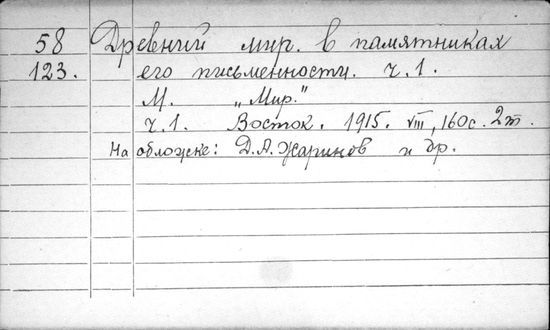 58 Древний мир. в памятниках
123. его письменности. ч.1.
М. „Мир."
ч.1. Восток. 1915. VIII, 160с. 2т.
На обложке: Д.А. Жаринов и др.